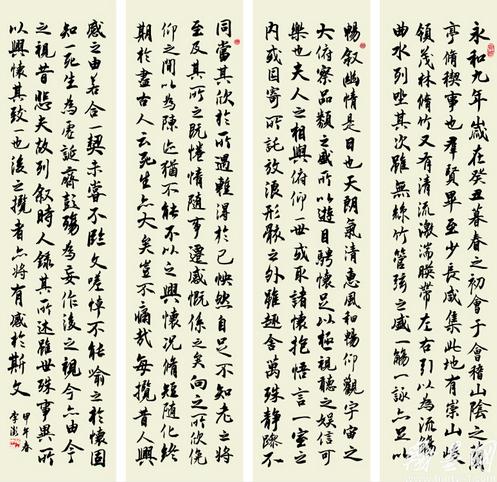 永和九年歲在癸丑暮春之初會于會稽山陰之蘭
亭脩稧事也羣賢畢至少長咸集此地有崇山峻
領茂林脩竹又有清流激湍暎帶左右引以為流觴
曲水列坐其次雖無絲竹管弦之盛一觴一詠亦足以
暢敘幽情是日也天朗氣清惠風和暢仰觀宇宙之
大俯察品類之盛所以遊目騁懷足以極視聽之娛信可
樂也夫人之相與俯仰一世或取諸懷抱悟言一室之
內或因寄所託放浪形骸之外雖趣舍萬殊靜躁不
同當其欣於所遇暫得於己怏然自足不知老之將
至及其所之既惓情隨事遷感慨係之矣向之所欣俛
仰之間以為陳迹猶不能不以之興懷況脩短隨化終
期於盡古人云死生亦大矣豈不痛哉每攬昔人興
感之由若合一契未嘗不臨文嗟悼不能喻之於懷固
知一死生為虛誕齊彭殤為妄作後之視今亦由今
之視昔悲夫故列敘時人錄其所述雖世殊事異所
以興懷其致一也後之攬者亦將有感於斯文
甲午春